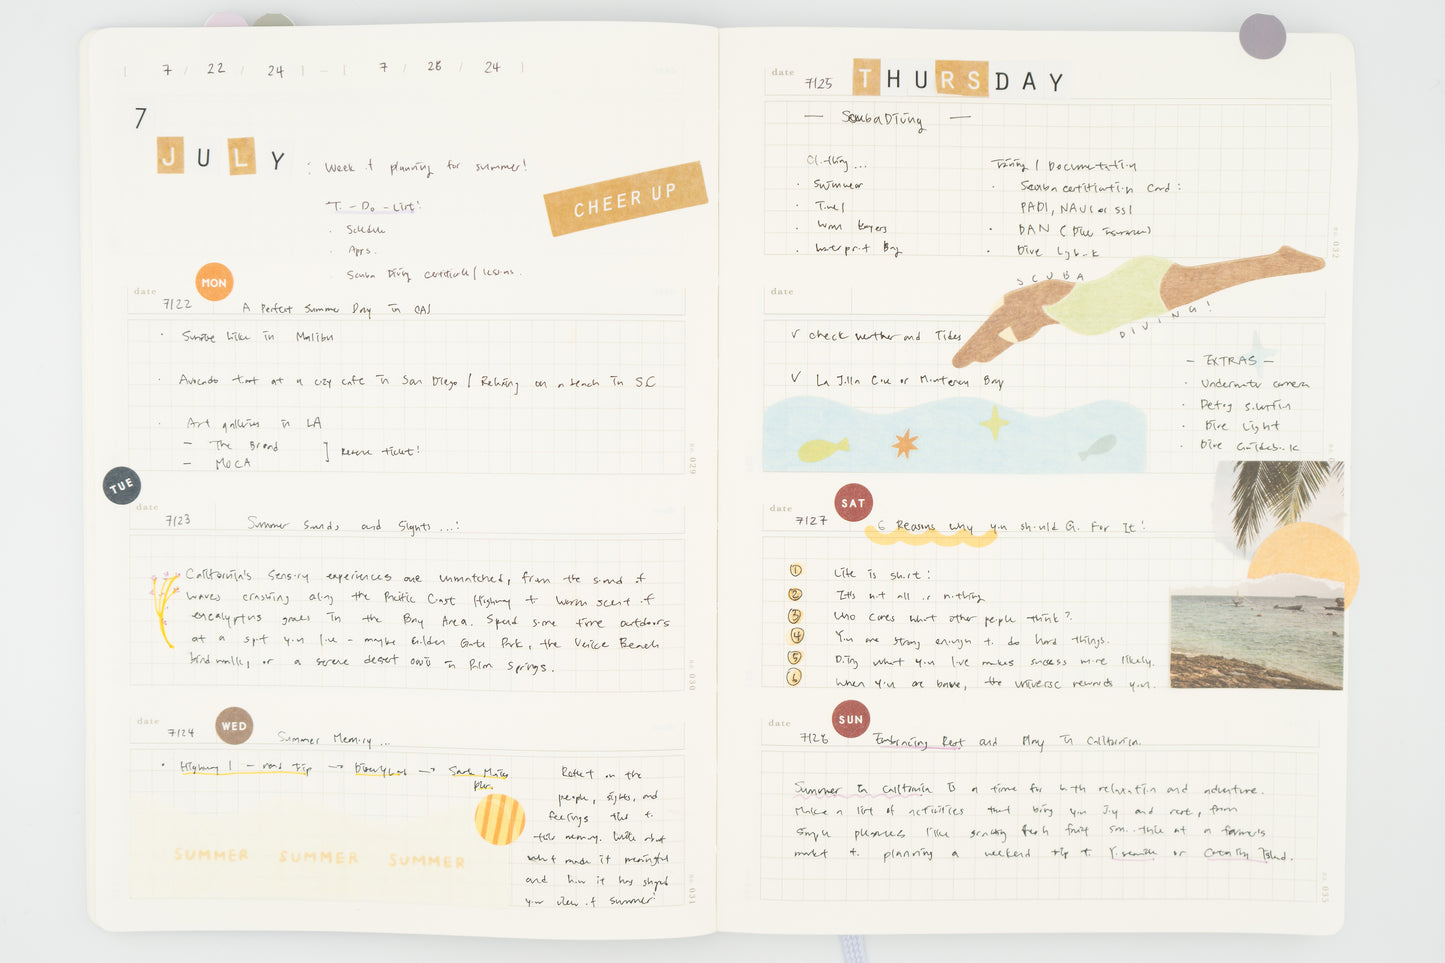 7 / 22 / 24 - 7 / 28 / 24
7
JULY : Week of planning for summer!
CHEER UP
To-Do-List:
· Schedule
· Apps.
· Scuba Diving certificate / lessons.
MON
date 7/22 A Perfect Summer Day in CA!
· Sunrise hike in Malibu
· Avocado toast at a cozy cafe in San Diego / Relaxing on a beach in SC
· Art galleries in LA
- The Broad
- MOCA
] Reserve ticket!
no. 029
TUE
date 7/23 Summer Sounds and Sights ...:
California's sensory experiences are unmatched, from the sound of
waves crashing along the Pacific Coast Highway to warm scent of
eucalyptus groves in the Bay Area. Spend some time outdoors
at a spot you love - maybe Golden Gate Park, the Venice Beach
boardwalk, or a serene desert oasis in Palm Springs.
no. 030
date 7/24 WED Summer Memory ...
· Highway 1 - road trip → Disneyland → Santa Monica
pier.
Reflect on the
people, sights, and
feelings tied to
this memory. Write about
what made it meaningful
and how it has shaped
your view of summer!
SUMMER SUMMER SUMMER
no. 031
date 7/25 THURSDAY
— Scuba Diving —
Clothing ...
· Swimwear
· Towel
· Warm Layers
· Waterproof Bag
Training / Documentation
· Scuba certification Card:
PADI, NAUI or SSI
· DAN (Dive insurance)
· Dive Logbook
no. 032
SCUBA
DIVING!
date
✓ Check weather and Tides
✓ La Jolla Cove or Monterey Bay
- EXTRAS -
· Underwater camera
· Defog solution
· Dive Light
· Dive Guidebook
SAT
date 7/27 6 Reasons why you should Go For It!
① Life is short!
② It's not all or nothing
③ Who cares what other people think?
④ You are strong enough to do hard things.
⑤ Doing what you love makes success more likely.
⑥ When you are brave, the universe rewards you.
SUN
date 7/28 Embracing Rest and Play in California.
Summer in California is a time for both relaxation and adventure.
Make a list of activities that bring you joy and rest, from
simple pleasures like grabbing fresh fruit smoothie at a farmer's
market to planning a weekend trip to Yosemite or Catalina Island.
no. 033